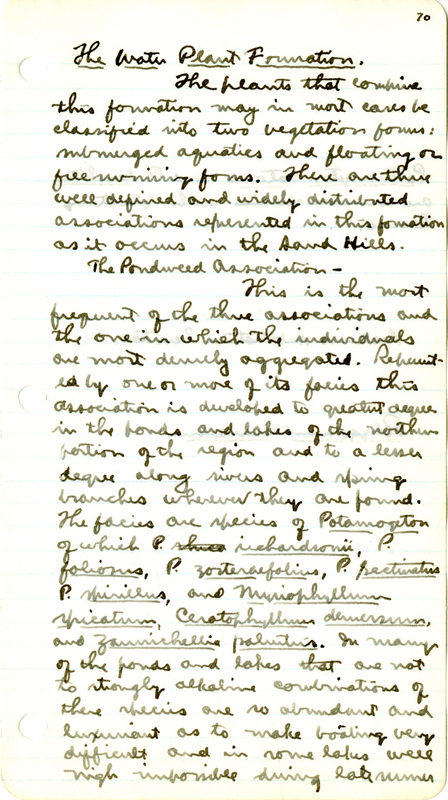 70
The Water Plant Formation.
The plants that combine
this formation may in most cases be
classified into two vegetation forms:
submerged aquatics and floating or
free swimming forms. There are three
well defined and widely distributed
associations represented in this formation
as it occurs in the Sand Hills.
The Pondweed Association —
This is the most
frequent of the three associations and
the one in which the individuals
are most densely aggregated. Represent-
ed by one or more of its facies this
association is developed to greatest degree
in the ponds and lakes of the northern
portion of the region and to a lesser
degree along rivers and spring
branches wherever they are found.
The facies are species of Potamogeton
of which P. richardsonii, P.
foliosus, P. zosteraefolius, P. pectinatus
P. spirillus, and Myriophyllum
spicatum, Ceratophyllum demersum,
and Zannichellia palustris. In many
of the ponds and lakes that are not
to strongly alkaline combinations of
these species are so abundant and
luxuriant as to make boating very
difficult and in some lakes well
nigh impossible during late summer